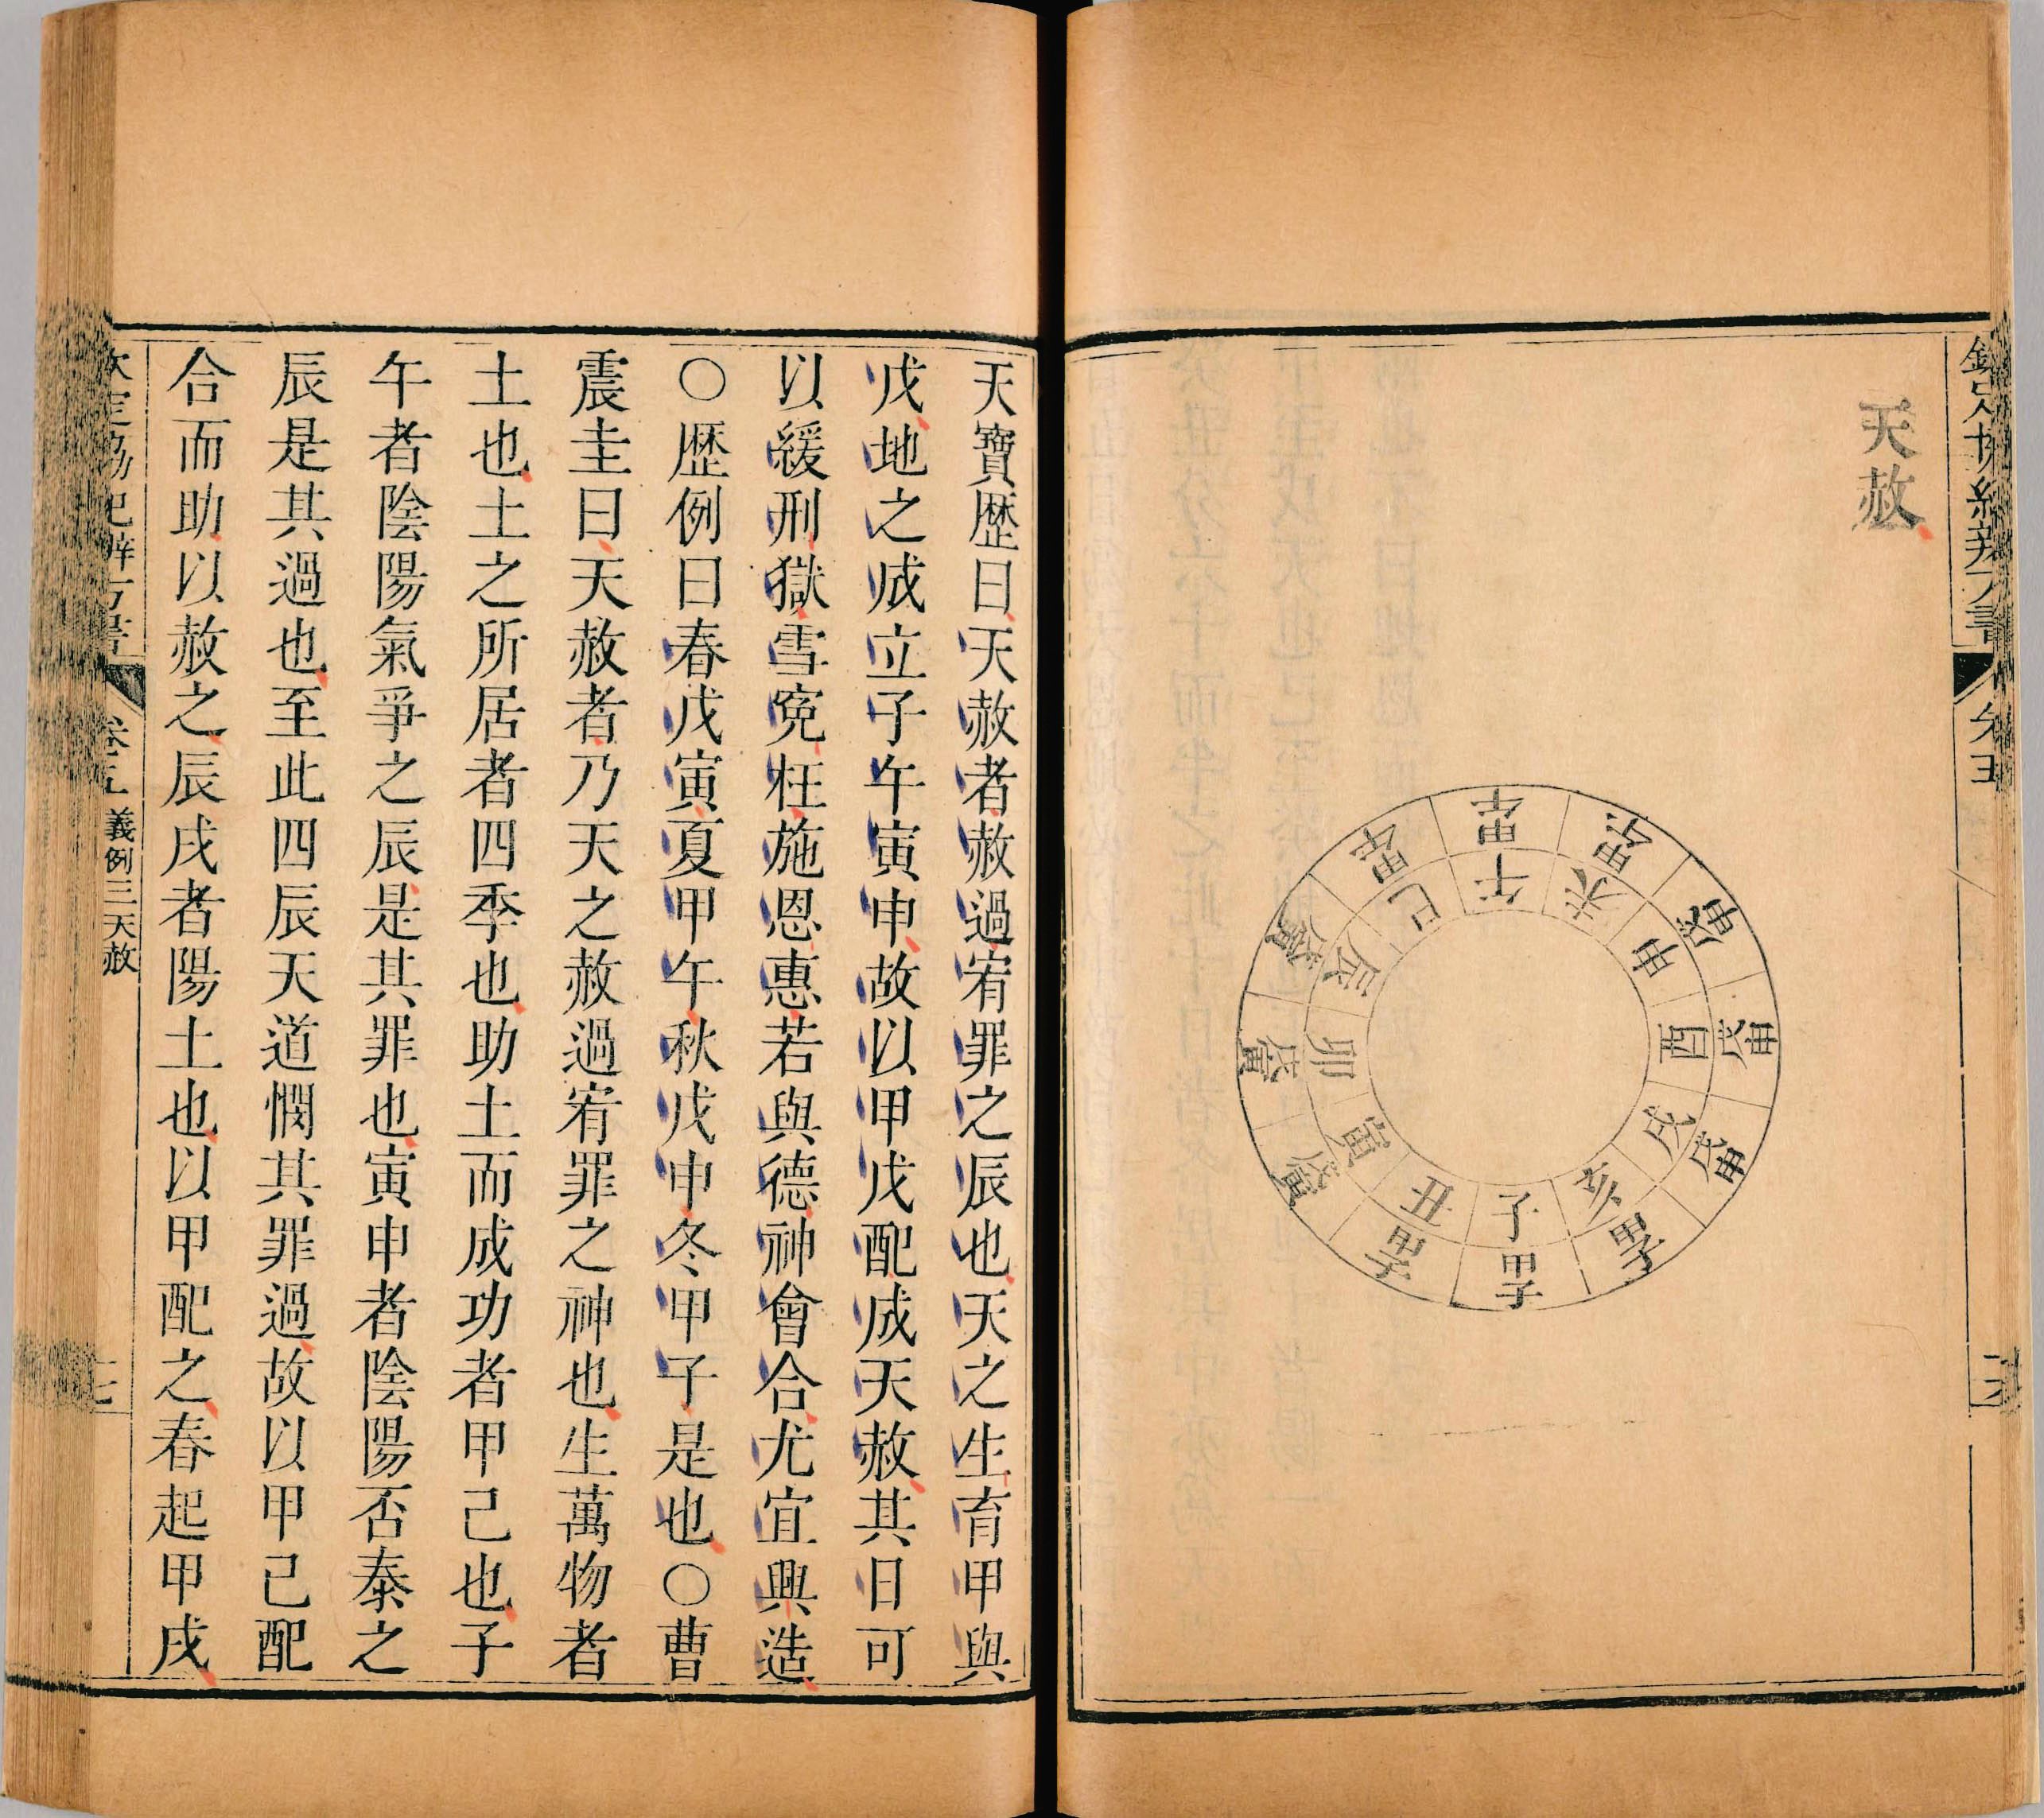 天赦
午 甲午
未 甲午
申 戊申
酉 戊申
戌 戊申
亥 甲子
子 甲子
丑 甲子
寅 戊寅
卯 戊寅
辰 戊寅
巳 甲午
天寶歴曰天赦者赦過宥罪之辰也天之生育甲與
戊地之成立子午寅申故以甲戊配成天赦其日可
以緩刑獄雪寃枉施恩惠若與德神會合尤宜興造
○歴例曰春戊寅夏甲午秋戊申冬甲子是也○曹
震圭曰天赦者乃天之赦過宥罪之神也生萬物者
土也土之所居者四季也助土而成功者甲己也子
午者陰陽氣爭之辰是其罪也寅申者陰陽否泰之
辰是其過也至此四辰天道憫其罪過故以甲己配
合而助以赦之辰戌者陽土也以甲配之春起甲戌
卷五 義例三天赦